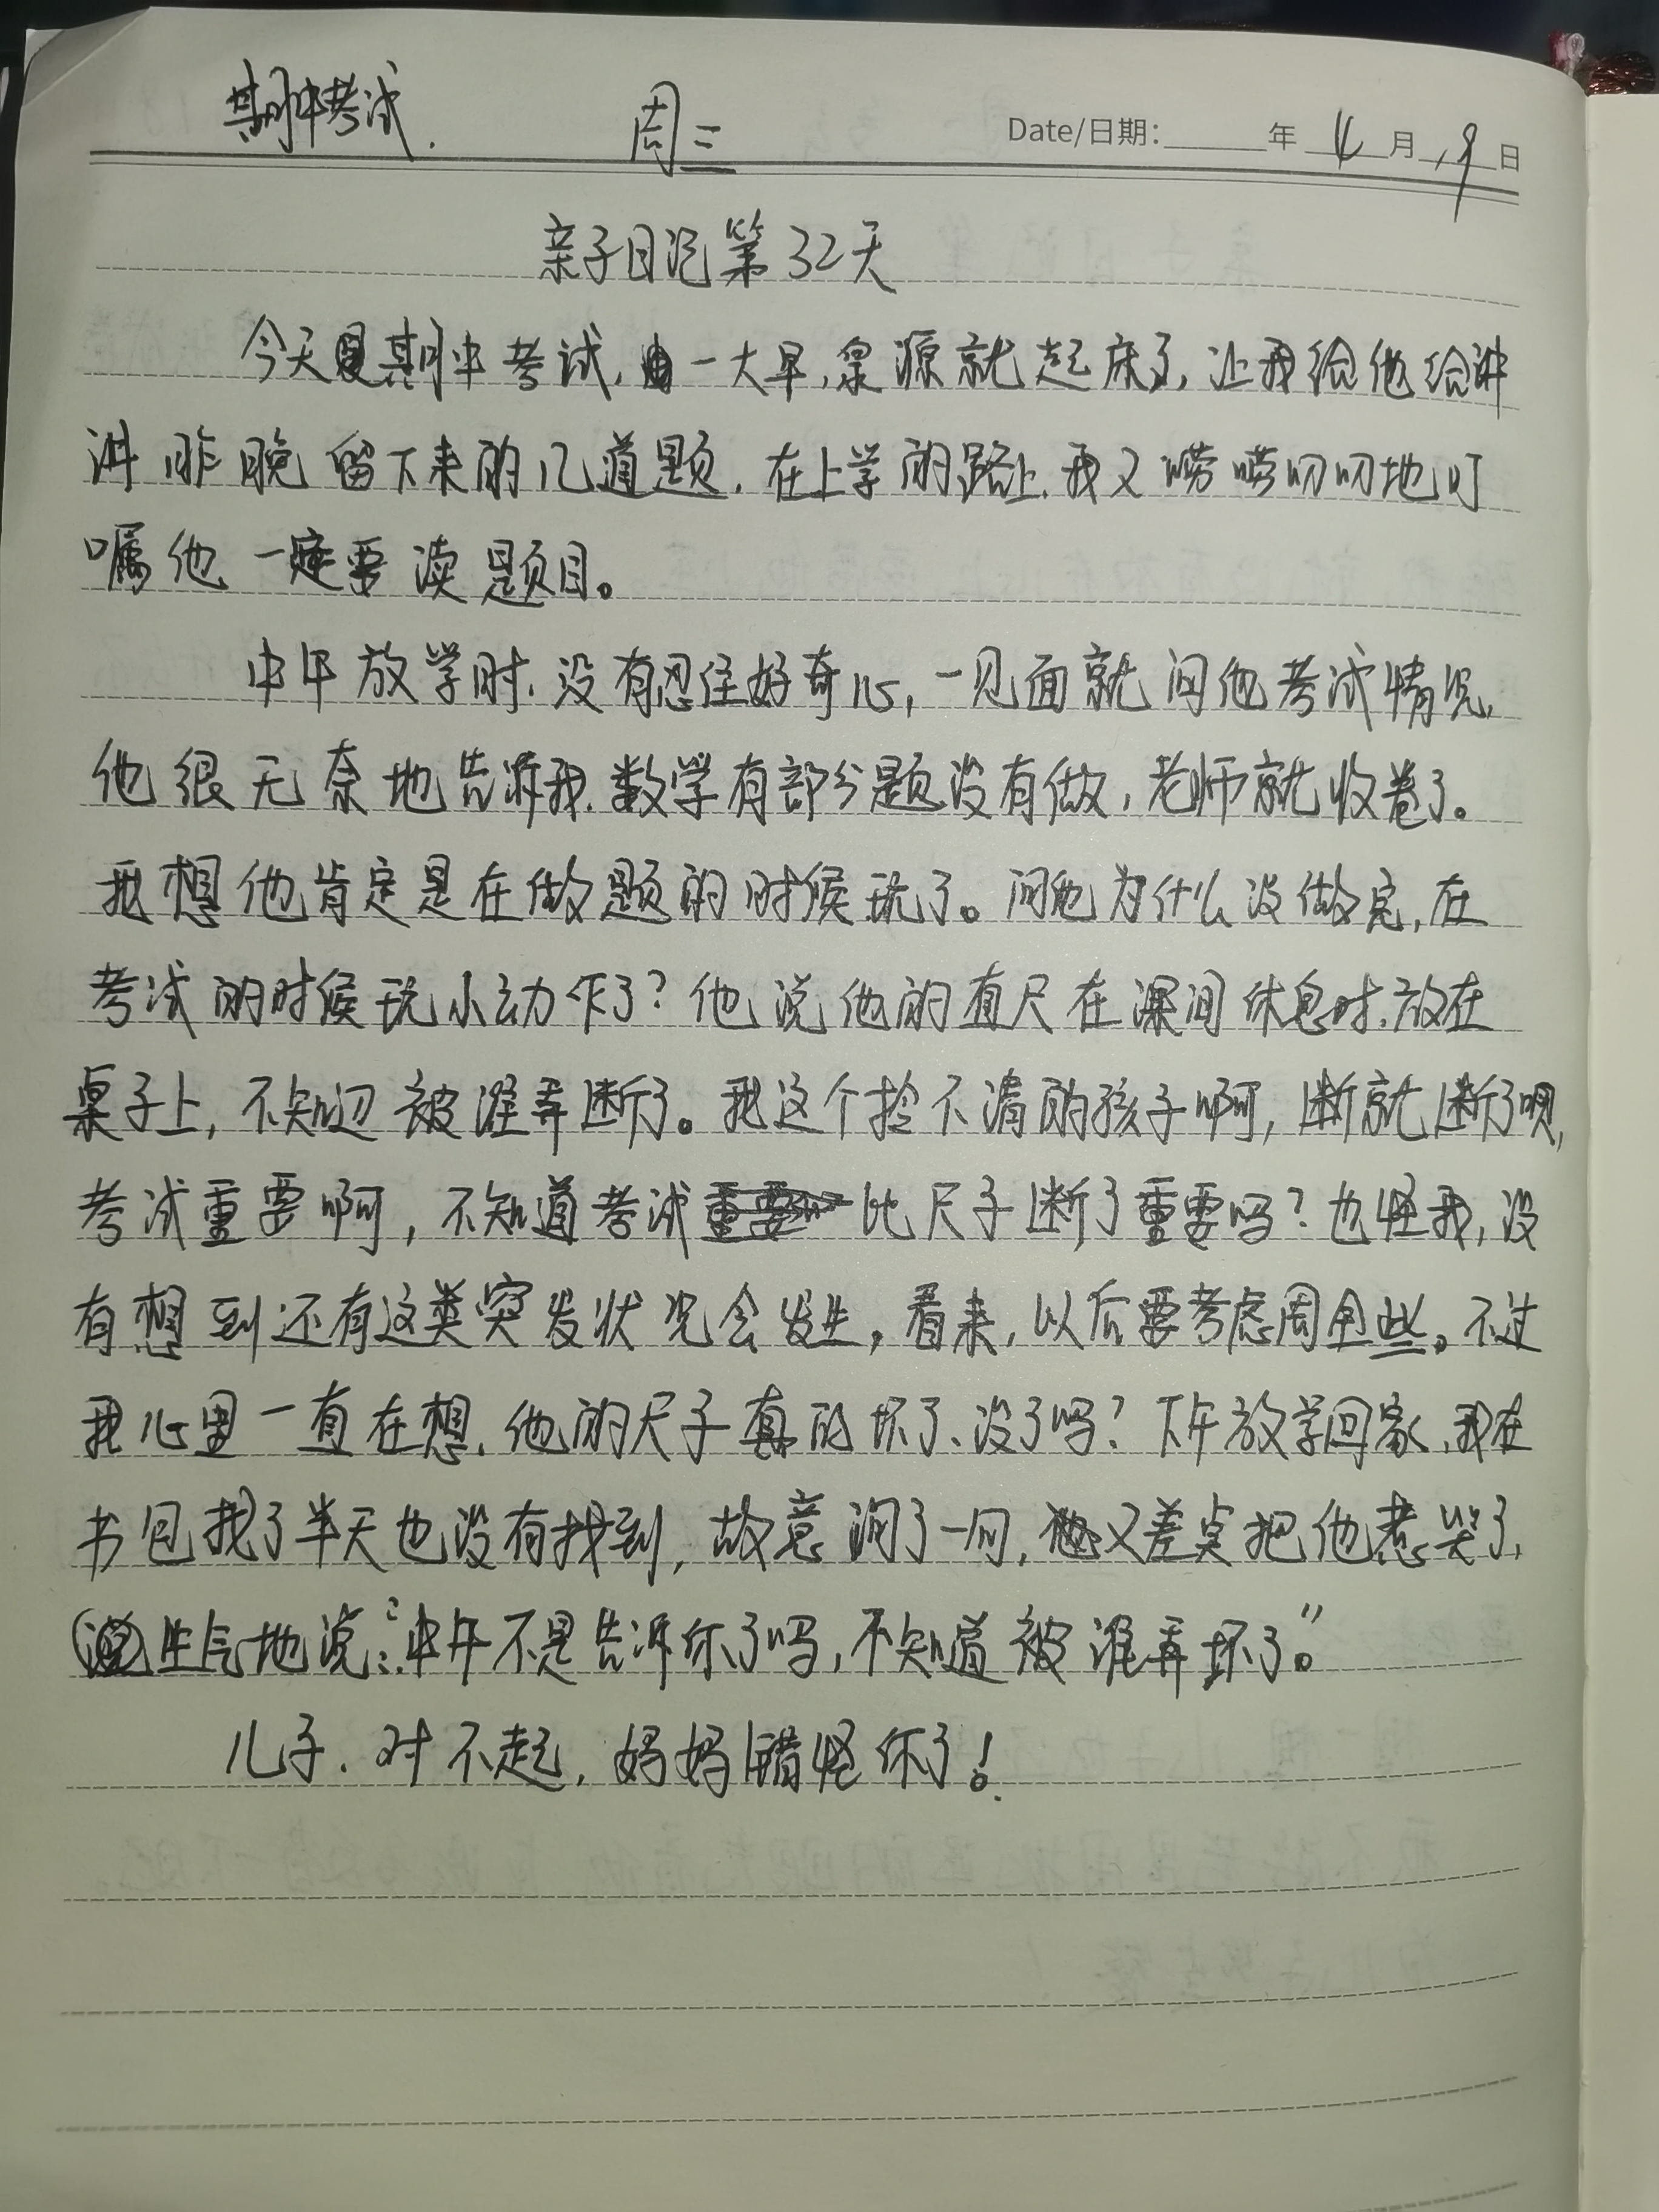 期中考试. 周三 Date/日期: 年 4 月 19 日
亲子日记第32天
今天是期中考试,一大早,泉源就起床了,让我给他给讲
讲昨晚留下来的几道题.在上学的路上.我又唠唠叨叨地叮
嘱他一定要读题目。
中午放学时.没有忍住好奇心,一见面就问他考试情况,
他很无奈地告诉我.数学有部分题没有做,老师就收卷了。
我想他肯定是在做题的时候玩了。问他为什么没做完,在
考试的时候玩小动作了?他说他的直尺在课间休息时.放在
桌子上,不知道被谁弄断了。我这个拎不清的孩子啊,断就断了呗,
考试重要啊,不知道考试比尺子断了重要吗?也怪我,没
有想到还有这类突发状况会发生,看来,以后要考虑周全些。不过
我心里一直在想.他的尺子真的坏了、没了吗?下午放学回家,我在
书包找了半天也没有找到,故意问了一问,又差点把他惹哭了,
生气地说:“中午不是告诉你了吗,不知道被谁弄坏了。”
儿子.对不起,妈妈错怪你了!